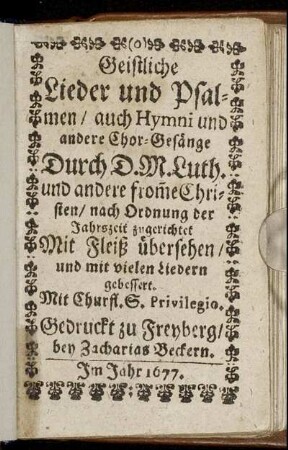 (o)
Geistliche
Lieder und Psal-
men / auch Hymni und
andere Chor-Gesänge
Durch D. M. Luth.
und andere from̃e Chri-
sten / nach Ordnung der
Jahrszeit zugerichtet
Mit Fleiß übersehen /
und mit vielen Liedern
gebessert.
Mit Churfl. S. Privilegio.
Gedruckt zu Freyberg /
bey Zacharias Beckern.
Im Jahr 1677.